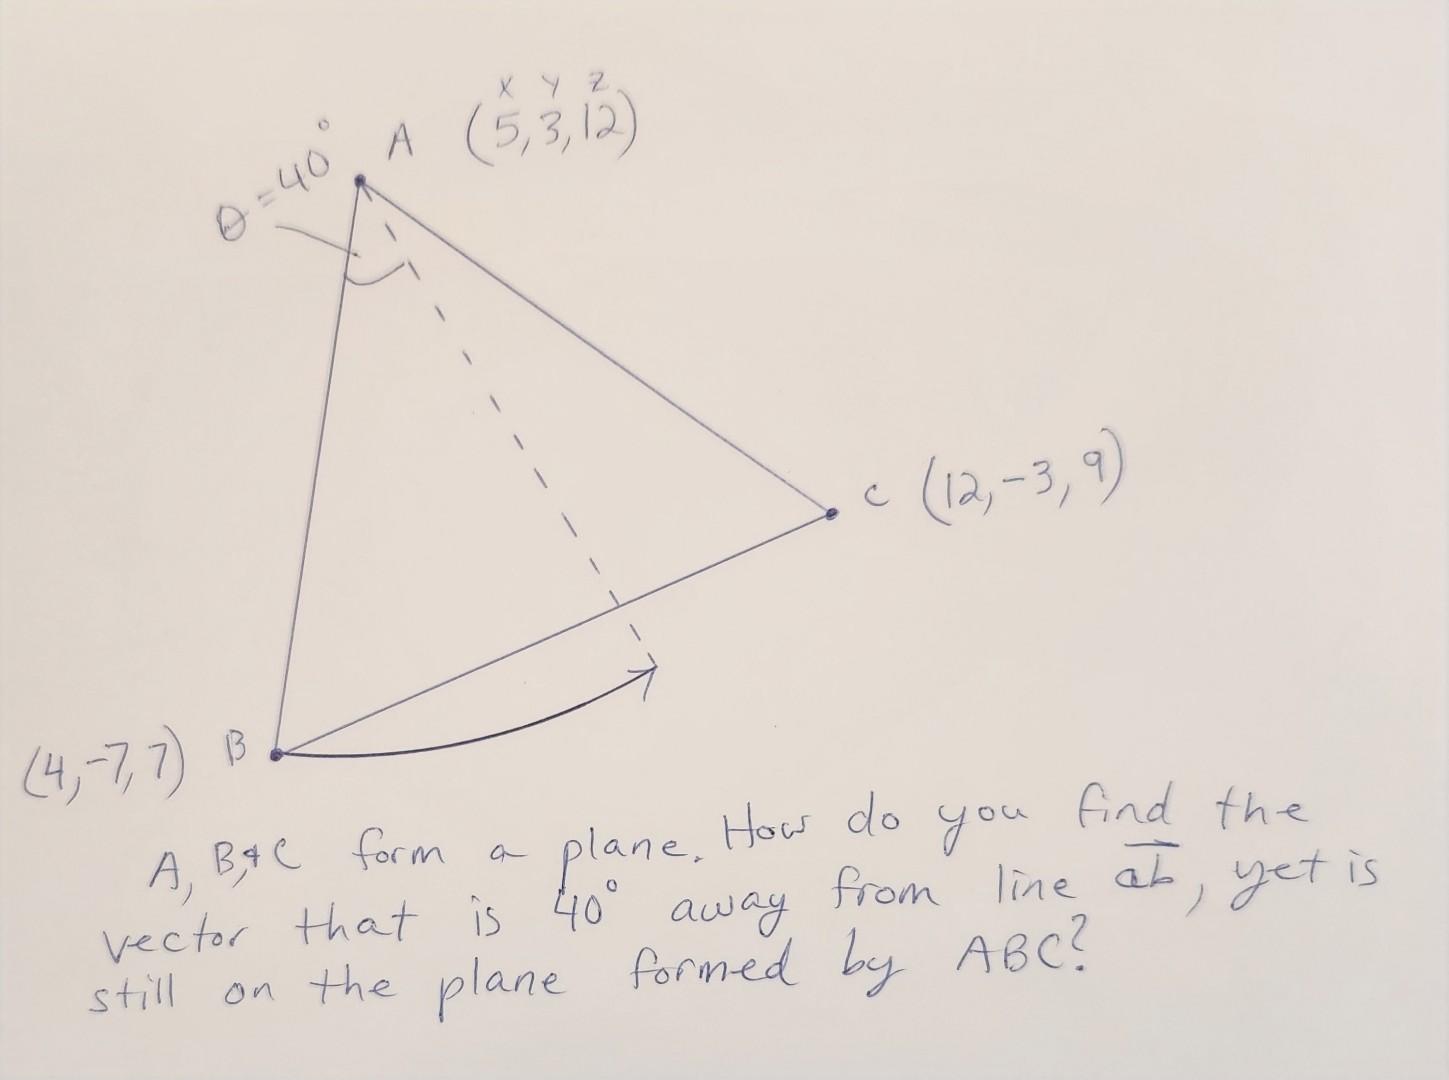 x y z
A (5,3,12)
θ=40°
C (12,-3,9)
(4,-7,7) B
A, B, & C form a plane. How do you find the
vector that is 40° away from line ab, yet is
still on the plane formed by ABC?